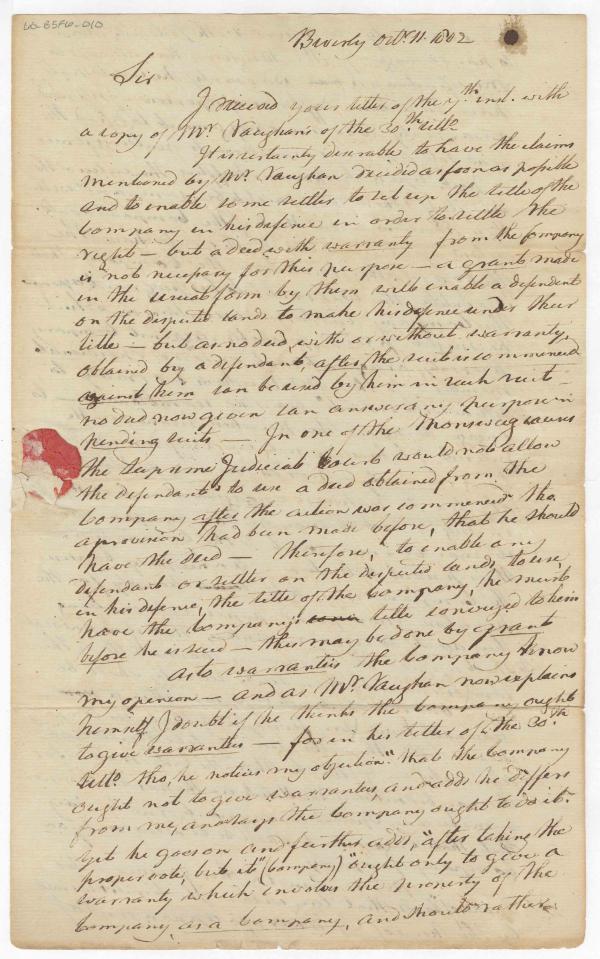 66-B5F6-010
Beverly Octr. 11. 1802
Sir
I received your letter of the 7th. inst. with
a copy of Mr Vaughans of the 30th. ulto.
It is certainly desirable to have the claims
mentioned by Mr. Vaughan decided as soon as possible
and to enable some settler to set up the title of the
Company in his defence in order to settle the
right — but a deed with warranty from the Company
is not necessary for this purpose — a grant made
in the usual form by them will enable a defendent
on the disputed lands to make his defence under their
title — but as no deed, with or without warranty,
obtained by a defendant, after the suit is commenced
against him can be used by him in such suit —
no deed now given can answer any purpose in
pending suits — In one of the Monsweag causes
the Supreme Judicial Court would not allow
the defendant to use a deed obtained from the
Company after the action was commenced tho
a provision had been made before, that he should
have the deed — therefore, to enable any
defendant or settler on the disputed lands to use,
in his defence, the title of the Company, he must
have the Companys title conveyed to him
before he is sued — this may be done by grant
as to warranties the Company know
my opinion — and as Mr. Vaughan now explains
himself I doubt if he thinks the Company ought
to give warranties — for in his letter of the 30th.
ulto. tho, he notices my objection "that the Company
ought not to give warranties, and adds he differs
from me, and says the Company ought to do it."
yet he goes on and further adds, "after taking the
proper vote, but it" (Company) "ought only to give a
warranty which involves the property of the
Company as a Company, and should rather